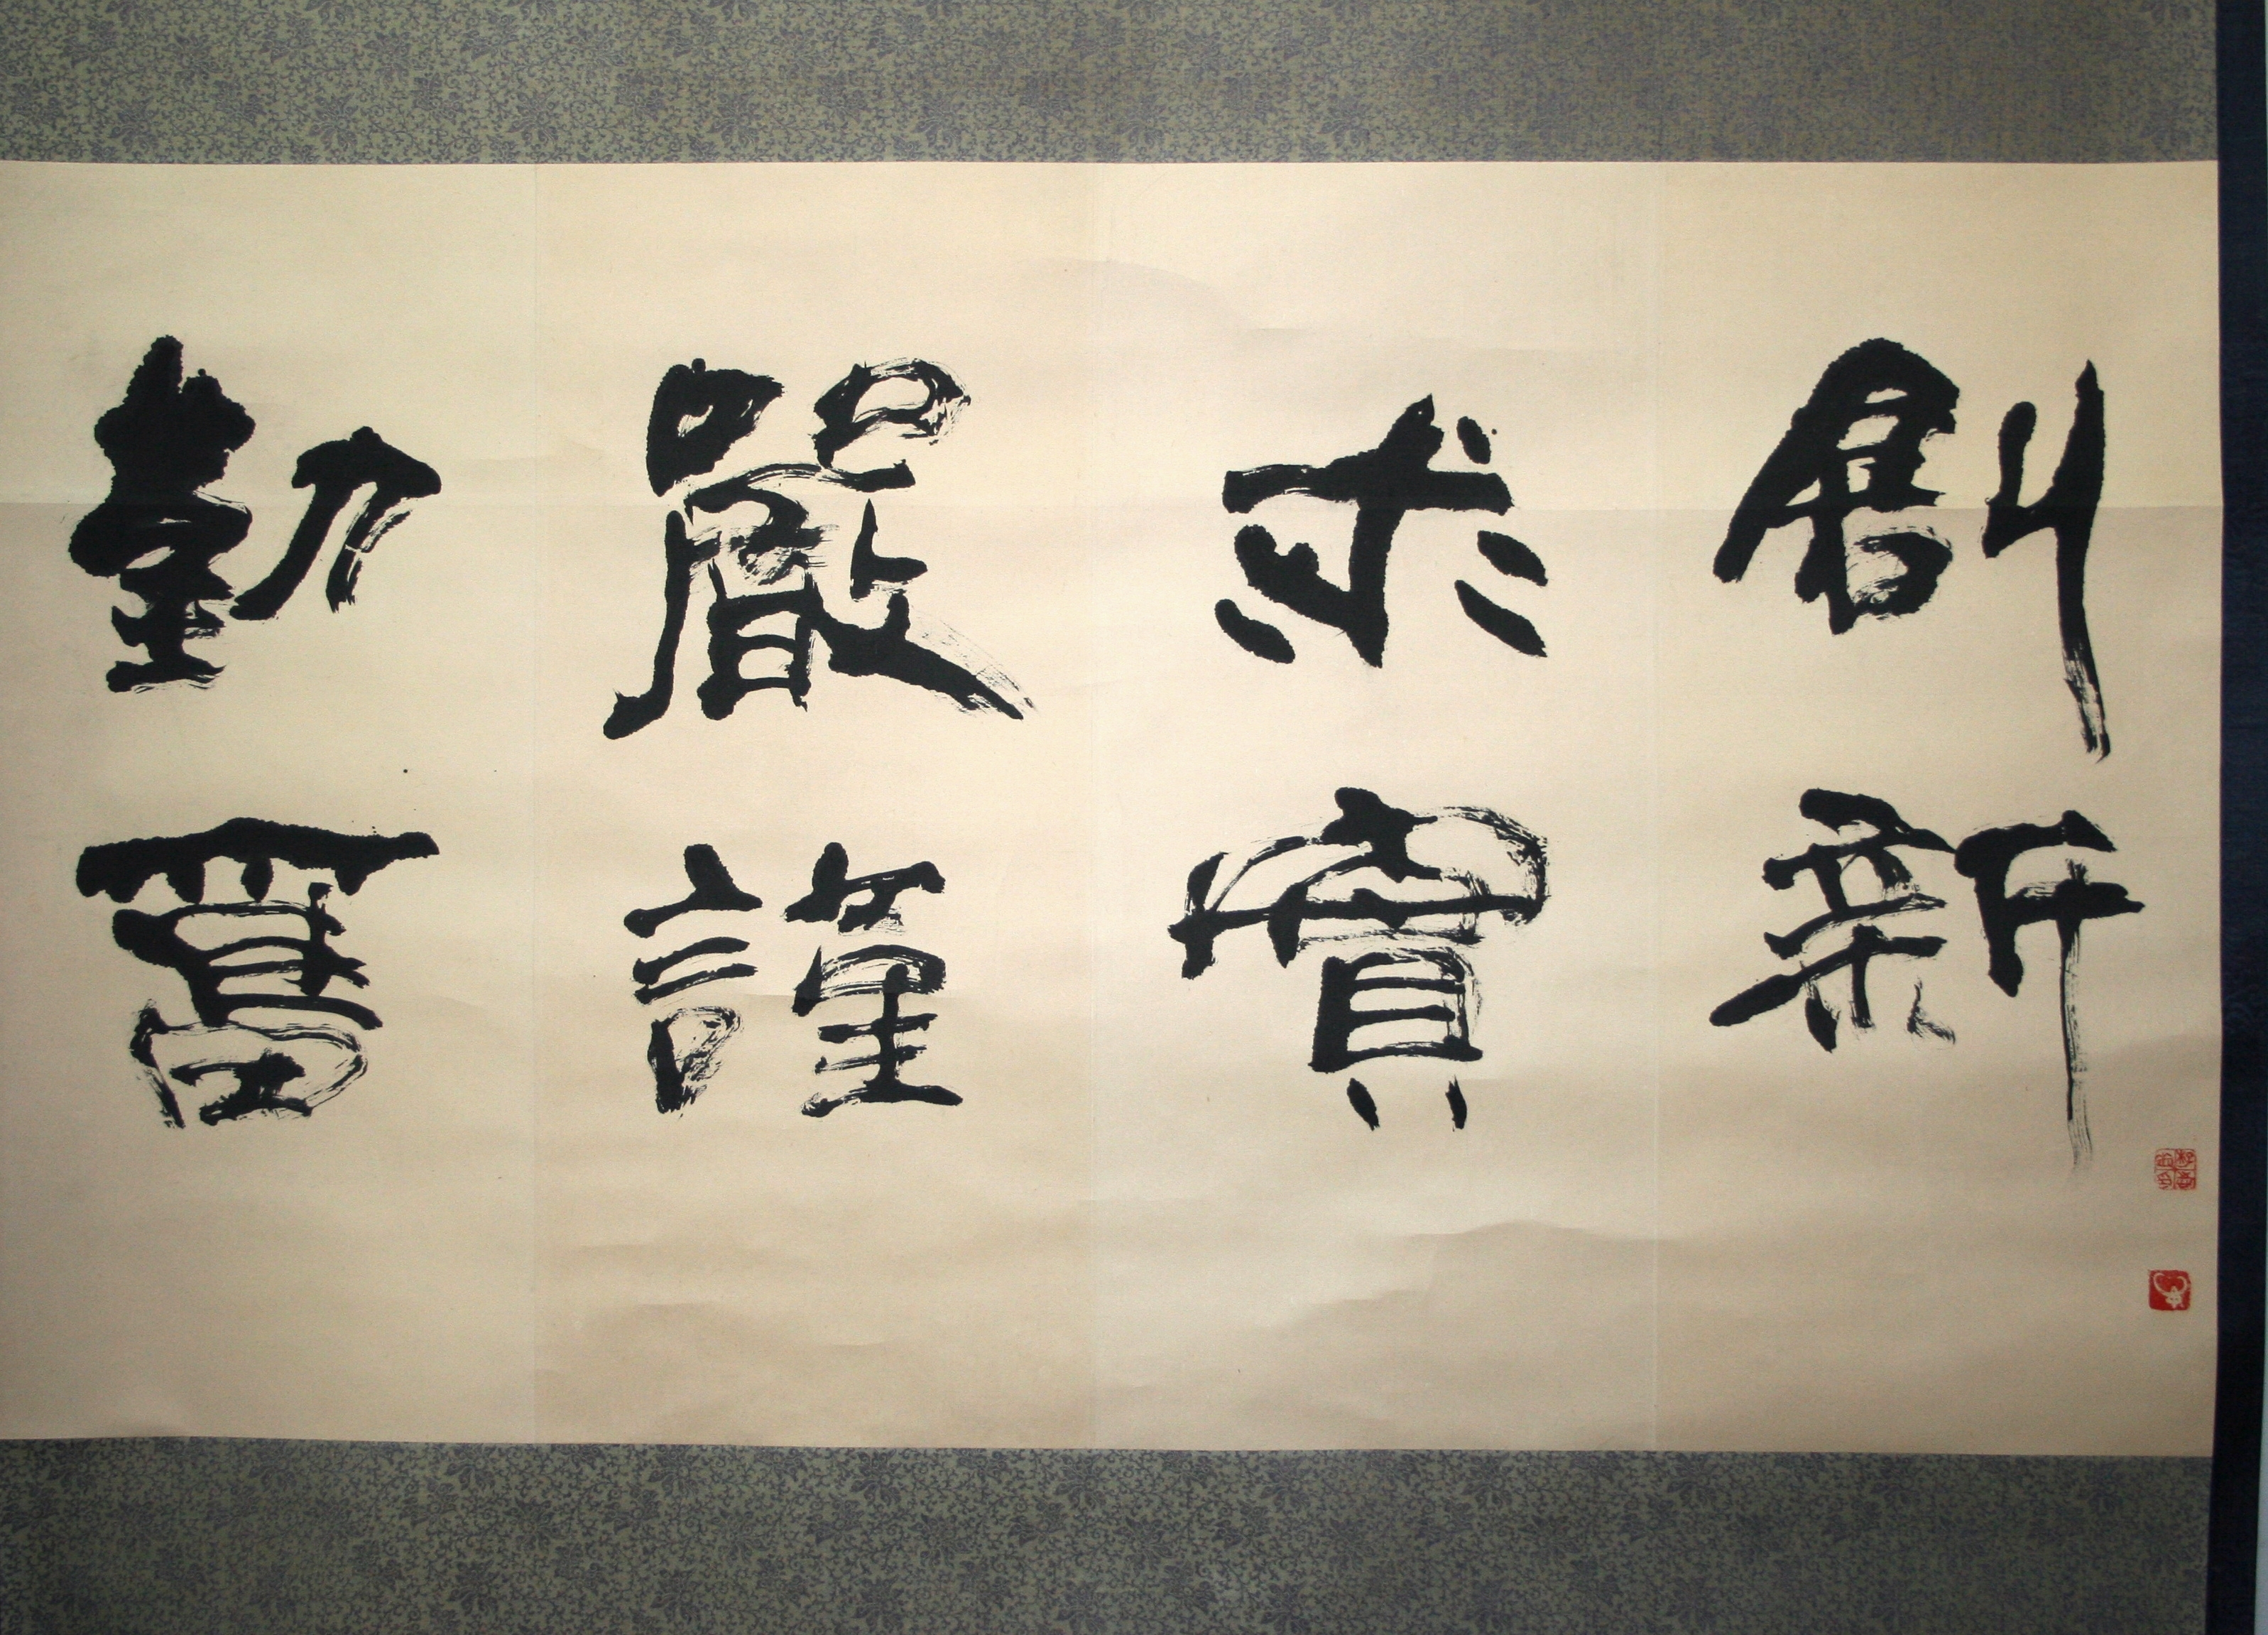 創新
求實
嚴謹
勤奮